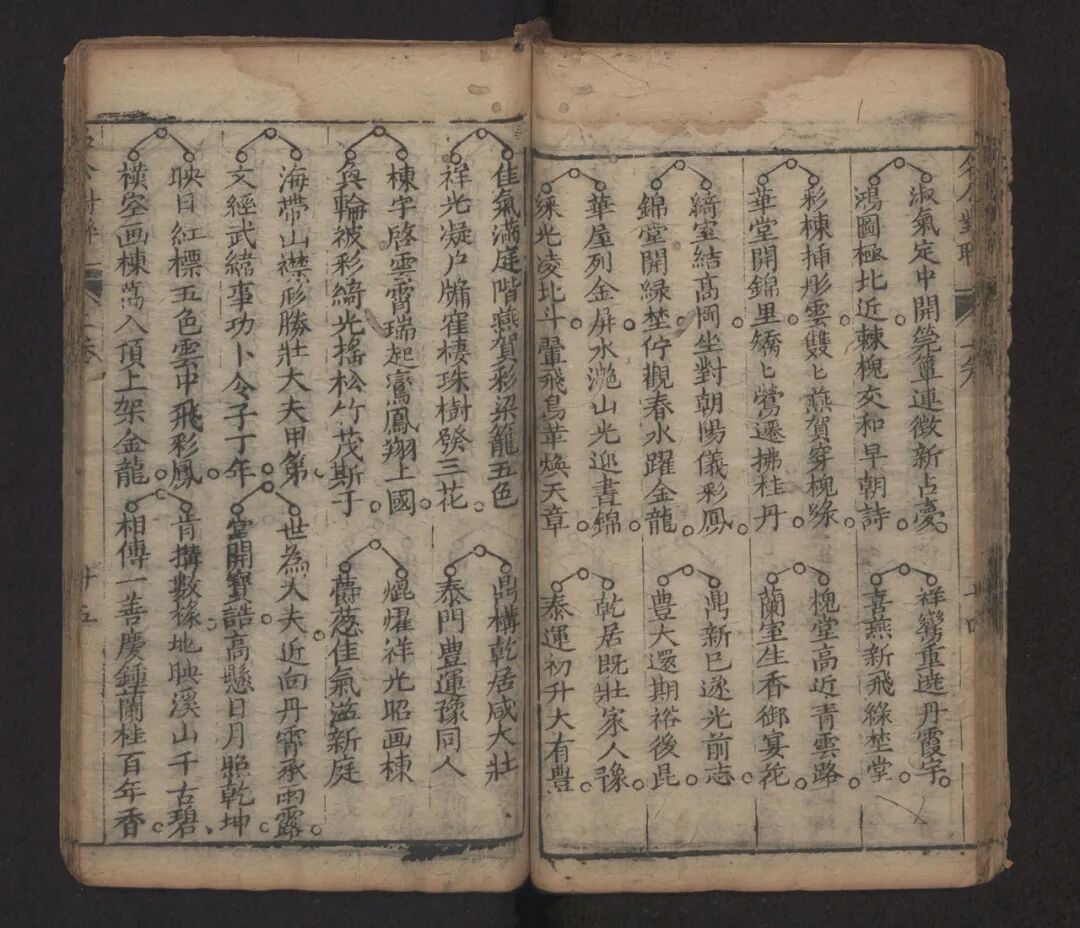 淑氣定中開筦簟連徵新占夢
鴻圖極北近棘槐交和早朝詩
彩棟揷彤雲雙〻燕賀穿槐綠
華堂開錦里矯〻鶯遷拂桂丹
綺室結高岡坐對朝陽儀彩鳳
錦堂開緑埜佇觀春水躍金龍
華屋列金屏水滟山光迎晝錦
光凌北斗翬飛鳥革煥天章
祥鸞重遶丹霞宇
喜燕新飛綠埜堂
槐堂高近青雲路
蘭室生香御宴花
鼎新已遂光前志
豊大還期裕後昆
乾居既壯家人豫
泰運初升大有豊
佳氣滿庭階燕賀彩梁籠五色
祥光凝户牖萑棲珠樹發三花
棟宇啓雲霄瑞起鸞鳳翔上國
奐輪被彩綺光搖松竹茂斯子
海帶山襟形勝壯大夫甲第
文經武緯事功卜令子丁年
映日紅標五色雲中飛彩鳳
橫空画棟萬人頂上架金龍
鼎構乾居咸大壯
泰門豊運豫同人
焜燿祥光昭画棟
欝葱佳氣滋新庭
世為大夫近向丹霄承雨露
堂開寶誥高懸日月照乾坤
肯搆數椽地映溪山千古碧
相傳一善慶鍾蘭桂百年香
十四
廿五